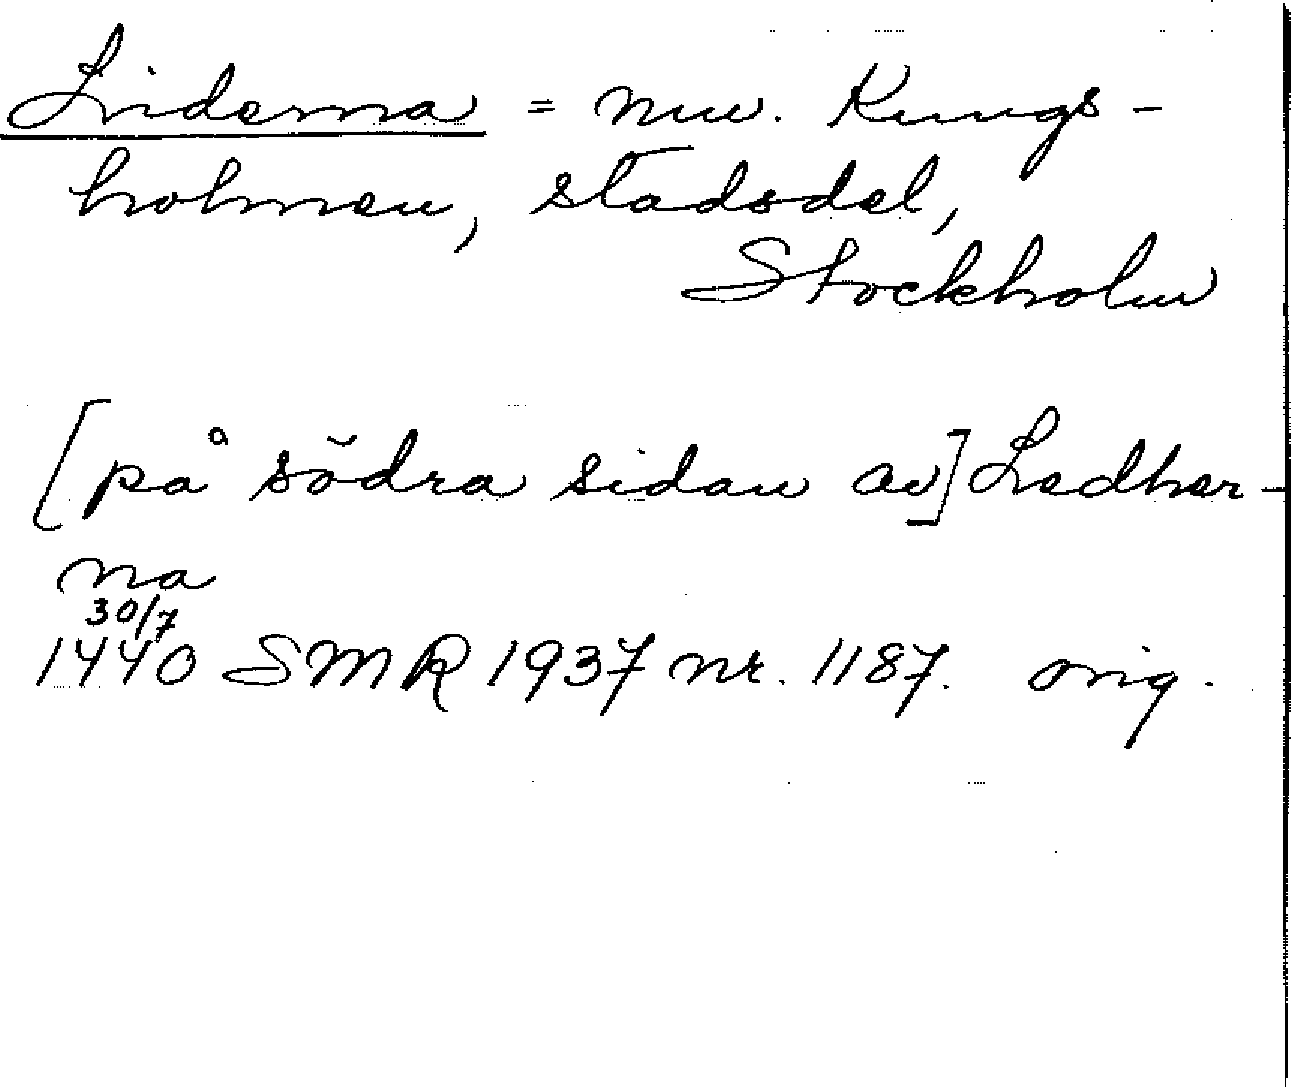 Liderna = nuv. Kungs-
holmen, stadsdel,
Stockholm
[på södra sidan av] Ledher-
na
30/7
1440 SMR 1937 nr. 1187. orig.